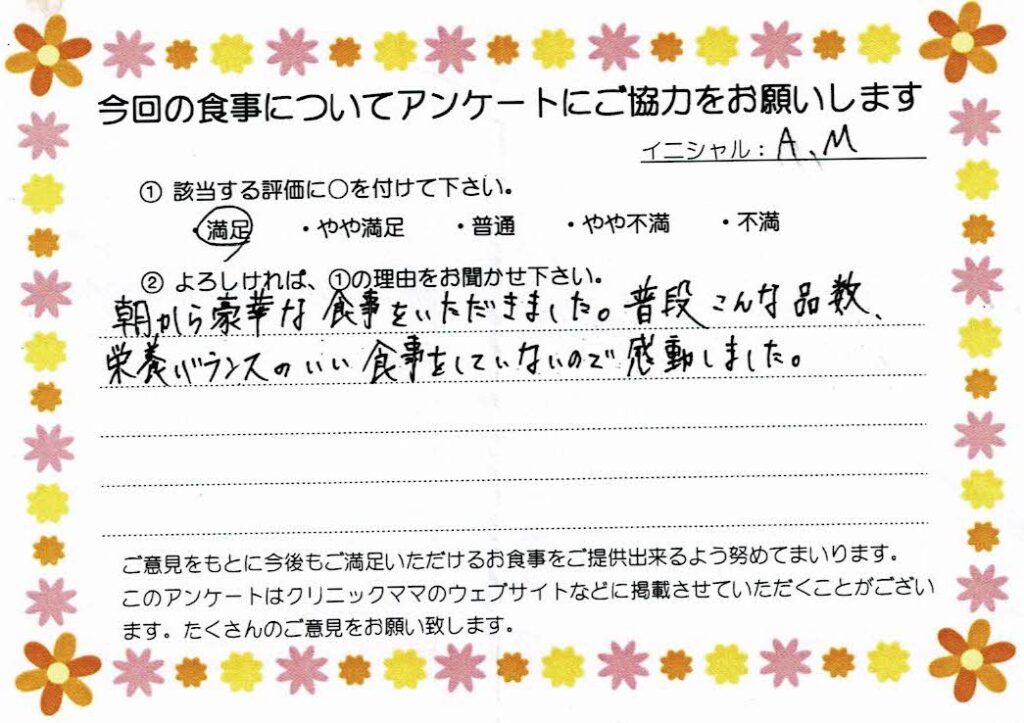 今回の食事についてアンケートにご協力をお願いします
イニシャル：A、M
① 該当する評価に○を付けて下さい。
・満足 ・やや満足 ・普通 ・やや不満 ・不満
② よろしければ、①の理由をお聞かせ下さい。
朝から豪華な食事をいただきました。普段こんな品数、
栄養バランスのいい食事をしていないので感動しました。
ご意見をもとに今後もご満足いただけるお食事をご提供出来るよう努めてまいります。
このアンケートはクリニックママのウェブサイトなどに掲載させていただくことがござい
ます。たくさんのご意見をお願い致します。